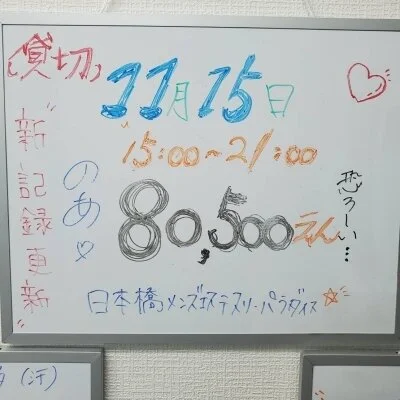 (貸切)
11月15日
15:00~21:00
"新記録更新"
のあ♡
80,500えん
恐ろしい...
日本橋メンズエステスリーパラダイス☆
(汗)